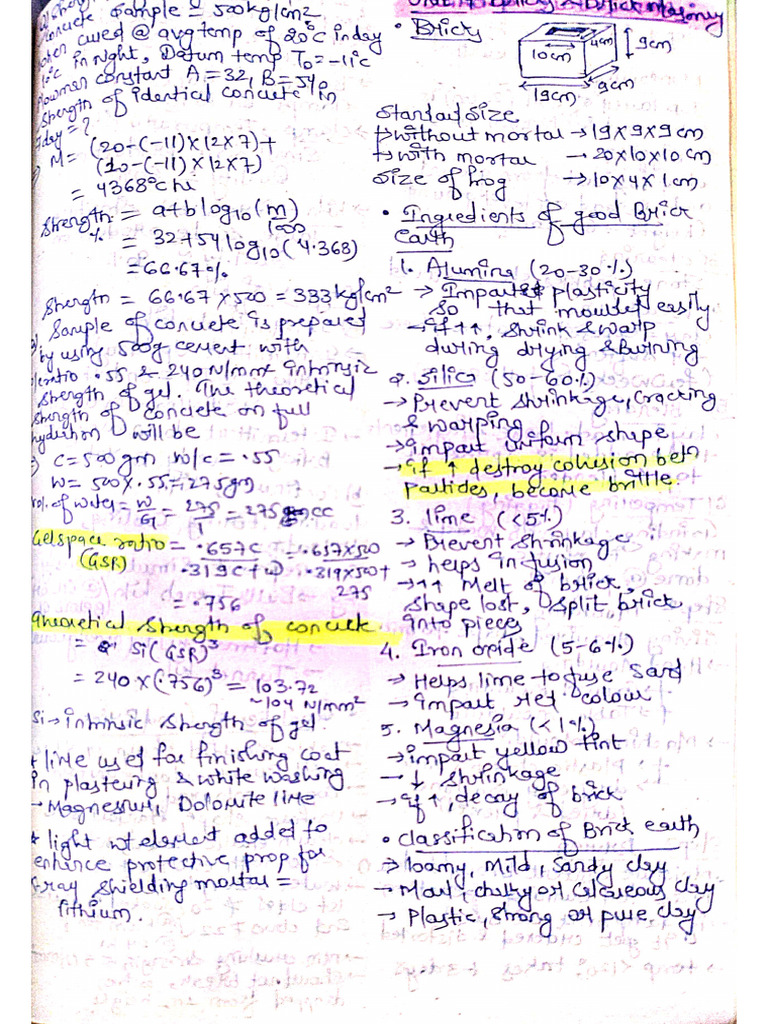 concrete sample = 500kg/cm2
cured @ avg temp of 20°C in day
10°c in night, Datum temp T0 = -11°c
Plowmen constant A = 32, B = 54
strength of identical concrete in
7day = ?
M = (20-(-11)x12x7)+
(10-(-11)x12x7)
= 4368°c hr
Strength % = a+b log10(m/1000)
= 32+54 log10(4.368)
= 66.67%
Strength = 66.67x500 = 333kg/cm2
Sample of concrete is prepared
by using 500g cement with
ratio .55 & 240 N/mm2 intrinsic
strength of gel. The theoretical
strength of concrete on full
hydration will be
C = 500 gm w/c = .55
W = 500x.55 = 275gm
vol. of water = W/G = 275/1 = 275 cc
Gel space ratio (GSR) = .657C/.319C+W = .657x500/.319x500+275
= .756
Theoretical strength of concrete
= Si(GSR)3
= 240x(.756)3 = 103.72
~104 N/mm2
Si → intrinsic strength of gel.
* lime used for finishing coat
in plastering & white washing
→ Magnesium, Dolomite lime
* light wt element added to
enhance protective prop for
X ray shielding mortar =
lithium.
Unit 4: Bricks & Brick Masonry
• Bricks
10cm
4cm
9cm
19cm
9cm
Standard size
→ without mortar → 19x9x9cm
→ with mortar → 20x10x10cm
size of frog → 10x4x1cm
• Ingredients of good Brick
earth
1. Alumina (20-30%)
→ Imparts plasticity
so that moulded easily
→ if ↑↑, shrink & warp
during drying & Burning
2. Silica (50-60%)
→ Prevent shrinkage, cracking
& warping
→ impart uniform shape
→ if ↑ destroy cohesion betn
Particles, become brittle.
3. lime (<5%)
→ Prevent shrinkage
→ helps in fusion
→ ↑↑ Melt of brick,
shape lost, split brick
into pieces
4. Iron opide (5-6%)
→ Helps lime to fuse sand
→ impart red colour
5. Magnesia (<1%)
→ impart yellow tint
→ ↓ shrinkage
→ if ↑, decay of brick
• Classification of Brick earth
→ loamy, Mild, Sandy clay
→ Marl, chalky or Calcareous clay
→ Plastic, strong or pure clay